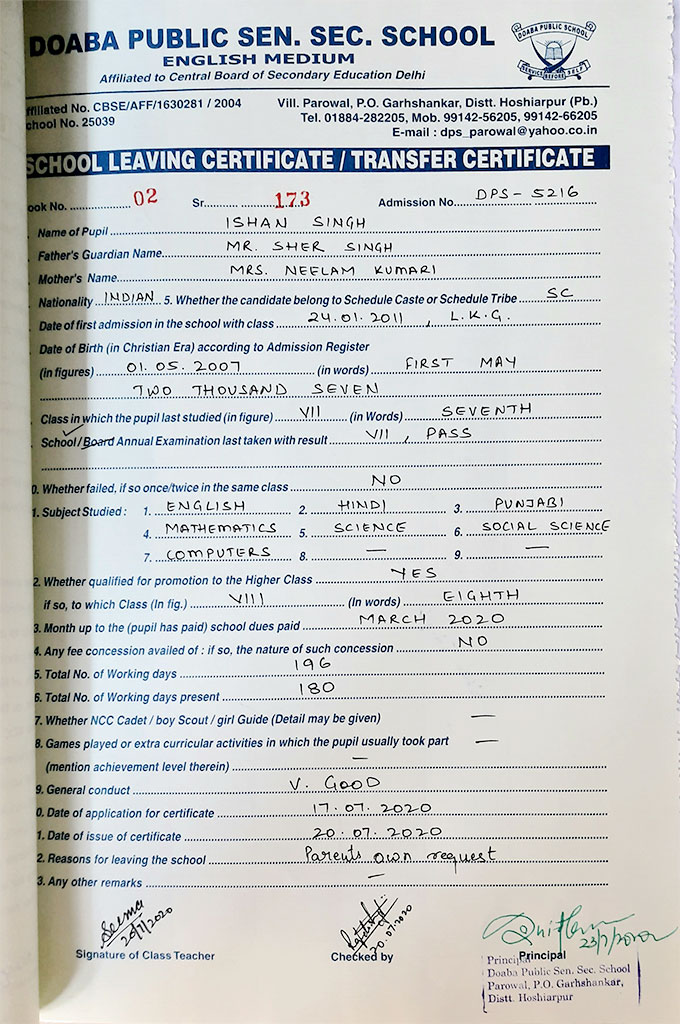 DOABA PUBLIC SEN. SEC. SCHOOL
ENGLISH MEDIUM
Affiliated to Central Board of Secondary Education Delhi
DOABA PUBLIC SCHOOL
SERVICE BEFORE SELF
ffiliated No. CBSE/AFF/1630281 / 2004 Vill. Parowal, P.O. Garhshankar, Distt. Hoshiarpur (Pb.)
chool No. 25039 Tel. 01884-282205, Mob. 99142-56205, 99142-66205
E-mail : dps_parowal@yahoo.co.in
SCHOOL LEAVING CERTIFICATE / TRANSFER CERTIFICATE
ook No. 02 Sr. 173 Admission No. DPS-5216
Name of Pupil ISHAN SINGH
Father's Guardian Name MR. SHER SINGH
Mother's Name MRS. NEELAM KUMARI
Nationality INDIAN 5. Whether the candidate belong to Schedule Caste or Schedule Tribe SC
Date of first admission in the school with class 24.01.2011, L.K.G.
Date of Birth (in Christian Era) according to Admission Register
(in figures) 01.05.2007 (in words) FIRST MAY
TWO THOUSAND SEVEN
Class in which the pupil last studied (in figure) VII (in Words) SEVENTH
School / Board Annual Examination last taken with result VII, PASS
0. Whether failed, if so once/twice in the same class NO
1. Subject Studied : 1. ENGLISH 2. HINDI 3. PUNJABI
4. MATHEMATICS 5. SCIENCE 6. SOCIAL SCIENCE
7. COMPUTERS 8. — 9. —
2. Whether qualified for promotion to the Higher Class YES
if so, to which Class (In fig.) VIII (In words) EIGHTH
3. Month up to the (pupil has paid) school dues paid MARCH 2020
4. Any fee concession availed of : if so, the nature of such concession NO
5. Total No. of Working days 196
6. Total No. of Working days present 180
7. Whether NCC Cadet / boy Scout / girl Guide (Detail may be given) —
8. Games played or extra curricular activities in which the pupil usually took part —
(mention achievement level therein) —
9. General conduct V. GOOD
0. Date of application for certificate 17.07.2020
1. Date of issue of certificate 20.07.2020
2. Reasons for leaving the school Parents own request
3. Any other remarks —
Seema
20/7/2020 20.07.2020 23/7/2020
Signature of Class Teacher Checked by Principal
Principal
Doaba Public Sen. Sec. School
Parowal, P.O. Garhshankar,
Distt. Hoshiarpur